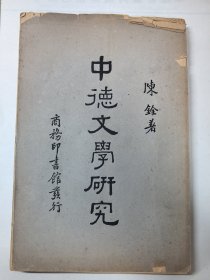 陳銓著
中德文學研究
商務印書館發行